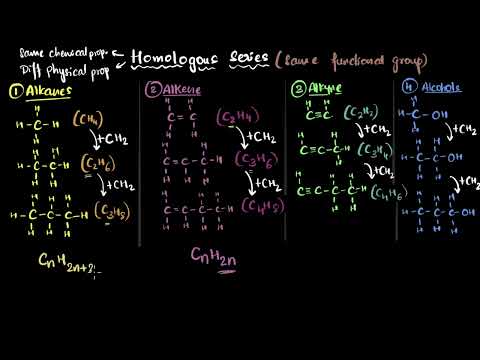 Same chemical prop.
Diff physical prop
Homologous Series (Same functional group)
① Alkanes
H
H-C-H
H
(CH4)
+CH2
H H
H-C-C-H
H H
(C2H6)
+CH2
H H H
H-C-C-C-H
H H H
(C3H8)
CnH2n+2
② Alkene
H H
C=C
H H
(C2H4)
+CH2
H H H
C=C-C-H
H H
(C3H6)
+CH2
H H H H
C=C-C-C-H
H H H
(C4H8)
CnH2n
③ Alkyne
H H
C≡C
(C2H2)
+CH2
H H
C≡C-C-H
H
(C3H4)
+CH2
H H H
C≡C-C-C-H
H H
(C4H6)
④ Alcohols
H
H-C-OH
H
+CH2
H H
H-C-C-OH
H H
+CH2
H H H
H-C-C-C-OH
H H H